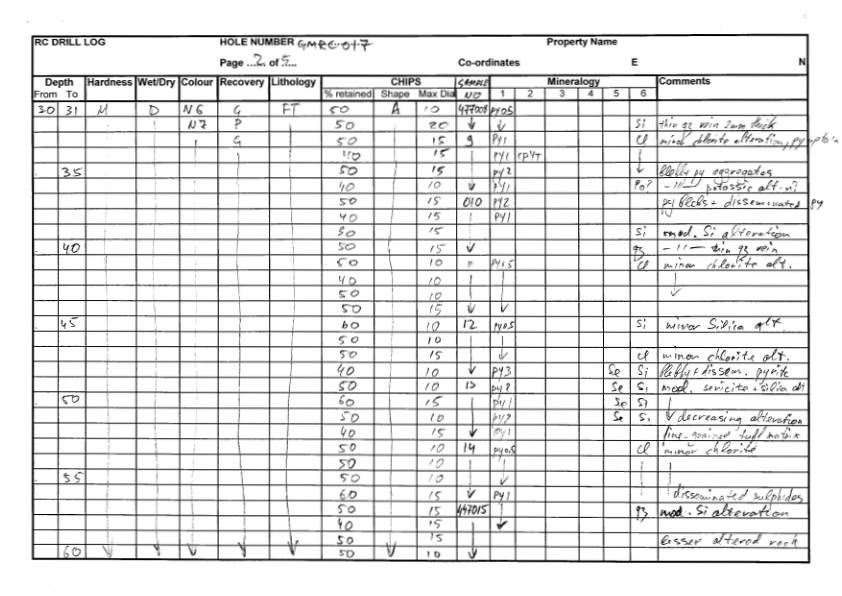 RC DRILL LOG HOLE NUMBER GMRC-017 Property Name
Page 2 of 5 Co-ordinates E N
Depth Hardness Wet/Dry Colour Recovery Lithology CHIPS SAMPLE Mineralogy Comments
From To % retained Shape Max Dia NO 1 2 3 4 5 6
30 31 M D N6 G FT 50 A 10 477008 py0.5
N7 P 50 20 Si thin qz vein 2mm thick
G 50 15 9 py1 cl minor chlorite alteration, py
40 15 py1 cpy
35 50 15 py2 blebby py aggregates
40 10 py1 po? -11- potassic alt-n?
50 15 010 py2 py blebs + disseminated py
40 15 py1
30 15 Si mod. Si alteration
40 50 15 qz -11- thin qz vein
50 10 11 py1.5 cl minor chlorite alt.
40 10
50 10
50 15
45 60 10 12 py0.5 Si minor Silica alt.
50 10
50 15 cl minor chlorite alt.
40 10 py3 Se Si blebby + dissem. pyrite
50 10 13 py2 Se Si mod. sericite + silica alt
50 60 15 py1 Se Si
50 10 py2 Se Si decreasing alteration
40 15 py1 fine-grained tuff matrix
50 10 14 py0.5 cl minor chlorite
50 10
55 50 10
60 15 py1 disseminated sulphides
50 15 447015 qz mod. Si alteration
40 15
50 15 lesser altered rock
60 50 10